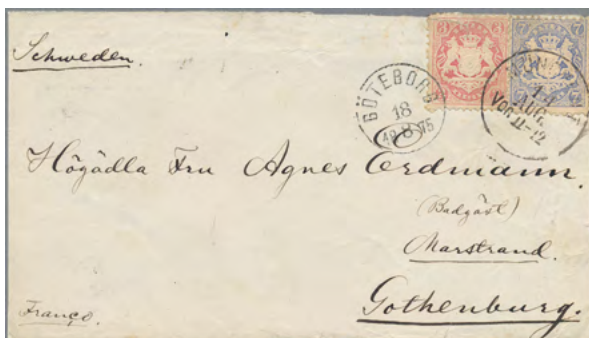 Schweden.
3 3
7 7
GÖTEBORG
18
8 75
14
AUG.
VOR. 11-12
Högädla Fru Agnes Erdmann.
(Badgäst)
Marstrand.
Gothenburg.
Franco.